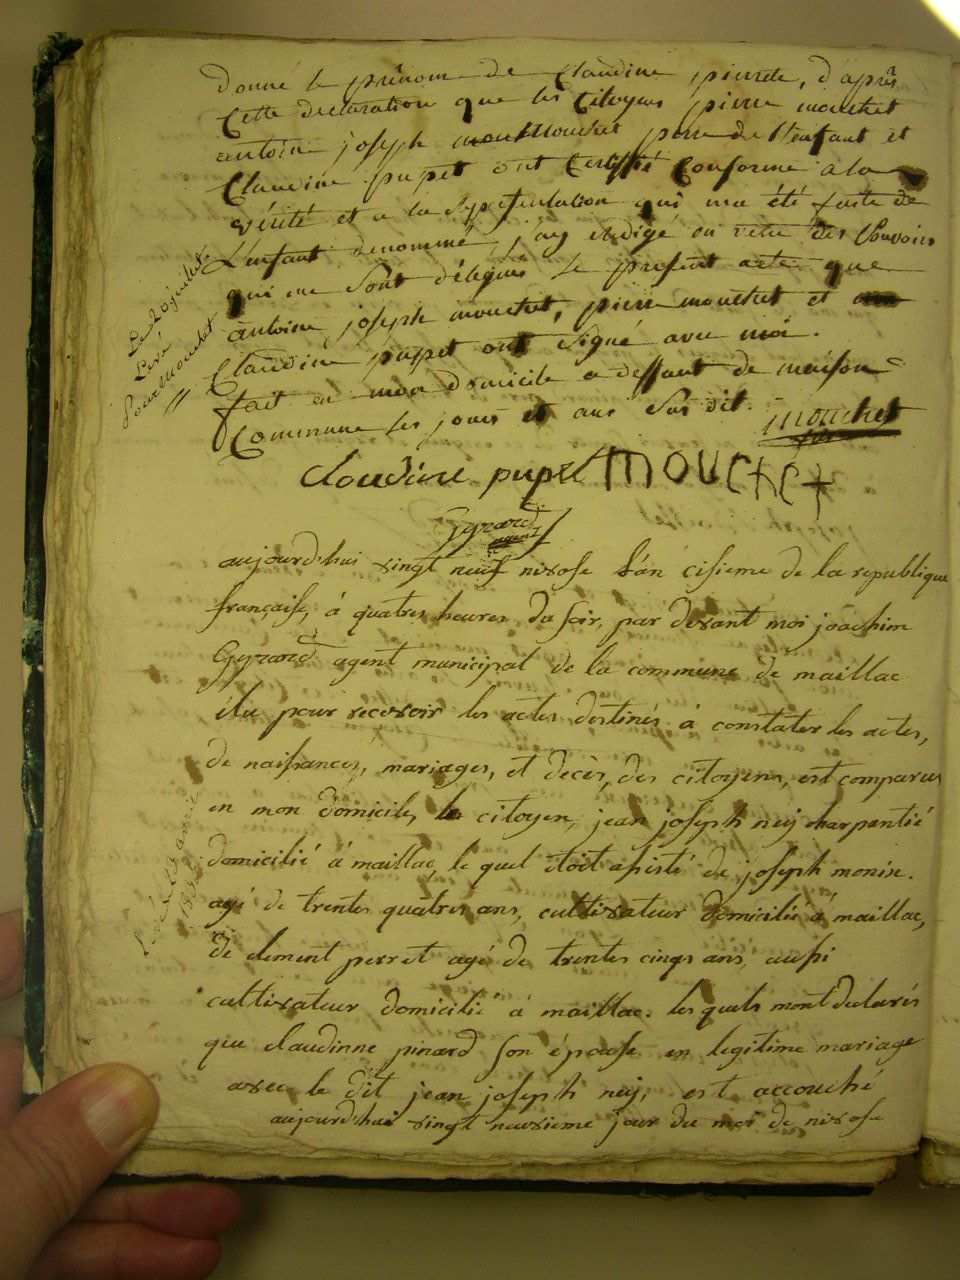 donné le prénom de Claudine pierrete, d'après
Cette declaration que les Citoyens pierre mouchet
antoine joseph mouchet pere de l'enfant et
Claudine pupet ont Certiffié Conforme a la
vérité et a la representation qui ma été faite de
L'enfant denommé, j'ay redigé en vertu des pouvoirs
qui me sont délegués le present acte que
antoine joseph mouchet, pierre mouchet et
Claudine pupet ont signé avec moi.
fait en mon domicile a deffaut de maison
Commune les jours et ans sus dit. mouchet
Claudine pupet MOUCHET
Gyrard
agent
aujourd'hui vingt neuf nivose l'an cisieme de la republique
française, à quatres heures du soir, par devant moi joachim
Gyrard agent municipal de la commune de maillac
élu pour recevoir les actes destinés à constater les actes,
de naissances, mariages, et decès, des citoyens, est comparus
en mon domicile, le citoyen, jean joseph ney charpantié
domicilié à maillac, le quel étoit assisté de joseph monin.
agé de trentes quatres ans, cultivateur domicilié à maillac,
de clement perret agé de trentes cinqs ans, aussi
cultivateur domicilié à maillac. les quels mont declarés
que claudinne pinard son épouse en legitime mariage
avec le dit jean joseph ney, est accouché
aujourd'hui vingt neuvieme jour du moi de nivose